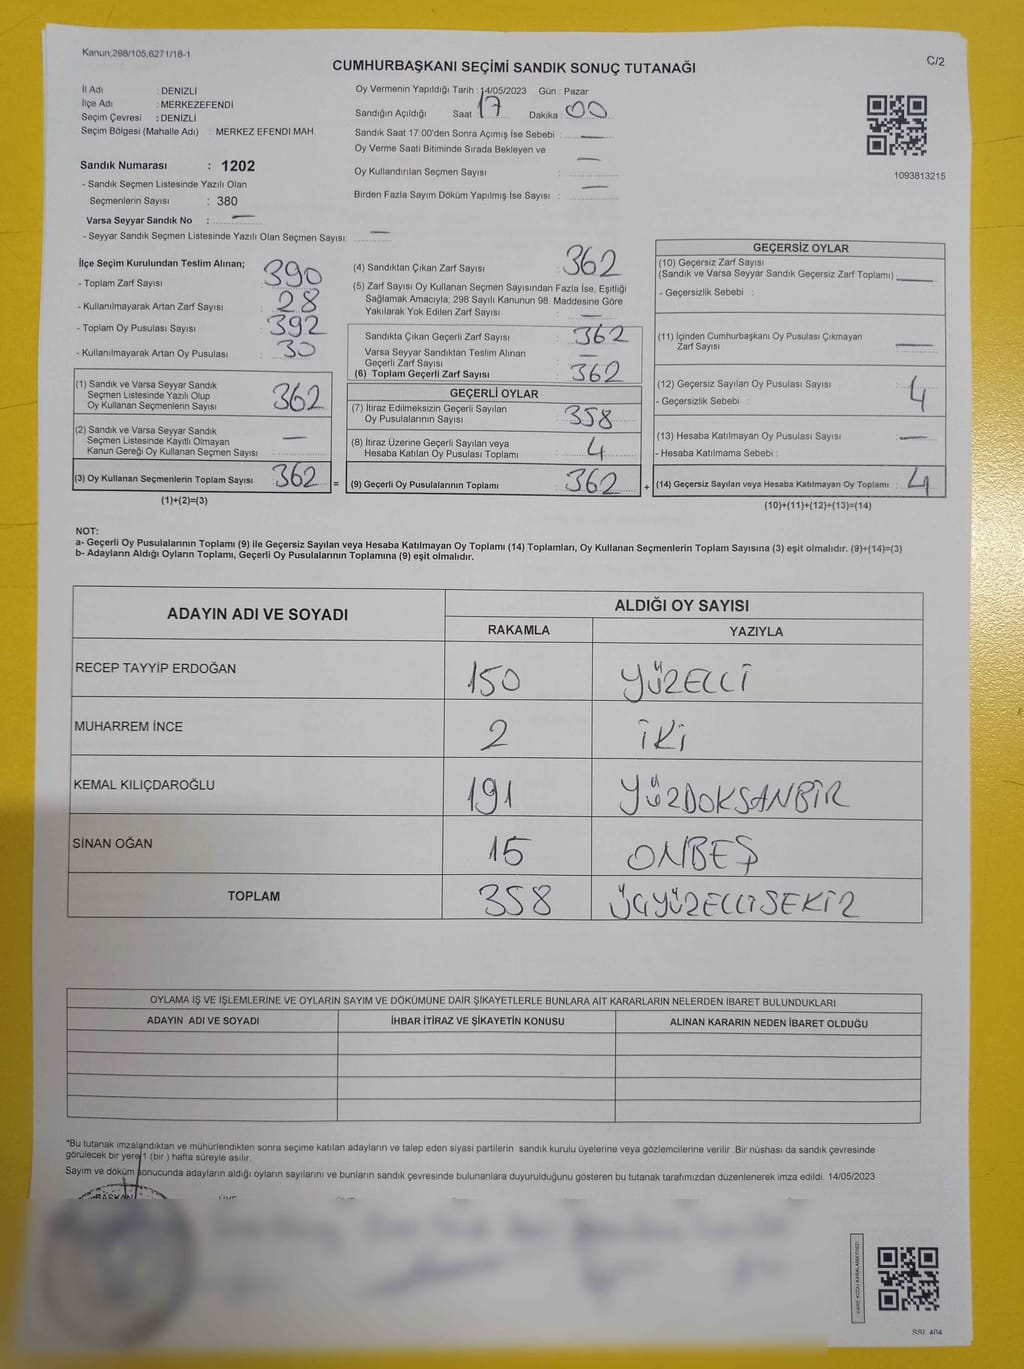 Kanun;298/105,6271/18-1
C/2
CUMHURBAŞKANI SEÇİMİ SANDIK SONUÇ TUTANAĞI
İl Adı : DENİZLİ
İlçe Adı : MERKEZEFENDİ
Seçim Çevresi : DENİZLİ
Seçim Bölgesi (Mahalle Adı) : MERKEZ EFENDİ MAH.
Sandık Numarası : 1202
- Sandık Seçmen Listesinde Yazılı Olan
Seçmenlerin Sayısı : 380
Varsa Seyyar Sandık No : —
- Seyyar Sandık Seçmen Listesinde Yazılı Olan Seçmen Sayısı: —
Oy Vermenin Yapıldığı Tarih : 14/05/2023 Gün : Pazar
Sandığın Açıldığı Saat 17 Dakika : 00
Sandık Saat 17:00'den Sonra Açımış İse Sebebi : —
Oy Verme Saati Bitiminde Sırada Bekleyen ve
Oy Kullandırılan Seçmen Sayısı : —
Birden Fazla Sayım Döküm Yapılmış İse Sayısı : —
1093813215
İlçe Seçim Kurulundan Teslim Alınan;
- Toplam Zarf Sayısı : 390
- Kullanılmayarak Artan Zarf Sayısı : 28
- Toplam Oy Pusulası Sayısı : 392
- Kullanılmayarak Artan Oy Pusulası : 30
(1) Sandık ve Varsa Seyyar Sandık
Seçmen Listesinde Yazılı Olup
Oy Kullanan Seçmenlerin Sayısı : 362
(2) Sandık ve Varsa Seyyar Sandık
Seçmen Listesinde Kayıtlı Olmayan
Kanun Gereği Oy Kullanan Seçmen Sayısı : —
(3) Oy Kullanan Seçmenlerin Toplam Sayısı : 362 =
(1)+(2)=(3)
(4) Sandıktan Çıkan Zarf Sayısı : 362
(5) Zarf Sayısı Oy Kullanan Seçmen Sayısından Fazla İse, Eşitliği
Sağlamak Amacıyla; 298 Sayılı Kanunun 98. Maddesine Göre
Yakılarak Yok Edilen Zarf Sayısı : —
Sandıkta Çıkan Geçerli Zarf Sayısı : 362
Varsa Seyyar Sandıktan Teslim Alınan
Geçerli Zarf Sayısı : —
(6) Toplam Geçerli Zarf Sayısı : 362
GEÇERLİ OYLAR
(7) İtiraz Edilmeksizin Geçerli Sayılan
Oy Pusulalarının Sayısı : 358
(8) İtiraz Üzerine Geçerli Sayılan veya
Hesaba Katılan Oy Pusulası Toplamı : 4
(9) Geçerli Oy Pusulalarının Toplamı : 362 +
GEÇERSİZ OYLAR
(10) Geçersiz Zarf Sayısı
(Sandık ve Varsa Seyyar Sandık Geçersiz Zarf Toplamı) : —
- Geçersizlik Sebebi :
(11) İçinden Cumhurbaşkanı Oy Pusulası Çıkmayan
Zarf Sayısı : —
(12) Geçersiz Sayılan Oy Pusulası Sayısı : 4
- Geçersizlik Sebebi :
(13) Hesaba Katılmayan Oy Pusulası Sayısı : —
- Hesaba Katılmama Sebebi :
(14) Geçersiz Sayılan veya Hesaba Katılmayan Oy Toplamı : 4
(10)+(11)+(12)+(13)=(14)
NOT:
a- Geçerli Oy Pusulalarının Toplamı (9) ile Geçersiz Sayılan veya Hesaba Katılmayan Oy Toplamı (14) Toplamları, Oy Kullanan Seçmenlerin Toplam Sayısına (3) eşit olmalıdır. (9)+(14)=(3)
b- Adayların Aldığı Oyların Toplamı, Geçerli Oy Pusulalarının Toplamına (9) eşit olmalıdır.
ADAYIN ADI VE SOYADI
ALDIĞI OY SAYISI
RAKAMLA YAZIYLA
RECEP TAYYİP ERDOĞAN 150 YÜZELLİ
MUHARREM İNCE 2 İKİ
KEMAL KILIÇDAROĞLU 191 YÜZDOKSANBİR
SİNAN OĞAN 15 ONBEŞ
TOPLAM 358 ÜÇYÜZELLİSEKİZ
OYLAMA İŞ VE İŞLEMLERİNE VE OYLARIN SAYIM VE DÖKÜMÜNE DAİR ŞİKAYETLERLE BUNLARA AİT KARARLARIN NELERDEN İBARET BULUNDUKLARI
ADAYIN ADI VE SOYADI İHBAR İTİRAZ VE ŞİKAYETİN KONUSU ALINAN KARARIN NEDEN İBARET OLDUĞU
*Bu tutanak imzalandıktan ve mühürlendikten sonra seçime katılan adayların ve talep eden siyasi partilerin sandık kurulu üyelerine veya gözlemcilerine verilir. Bir nüshası da sandık çevresinde
görülecek bir yere 1 (bir ) hafta süreyle asılır.
Sayım ve döküm sonucunda adayların aldığı oyların sayılarını ve bunların sandık çevresinde bulunanlara duyurulduğunu gösteren bu tutanak tarafımızdan düzenlenerek imza edildi. 14/05/2023
BAŞKAN
SSI 404